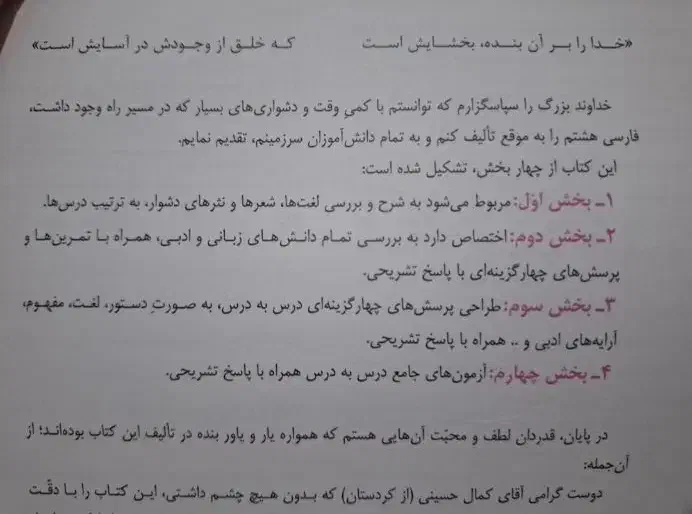 «خدا را بر آن بنده، بخشایش است که خلق از وجودش در آسایش است»
خداوند بزرگ را سپاسگزارم که توانستم با کمیِ وقت و دشواری‌های بسیار که در مسیر راه وجود داشت،
فارسی هشتم را به موقع تألیف کنم و به تمام دانش‌آموزان سرزمینم، تقدیم نمایم.
این کتاب از چهار بخش، تشکیل شده است:
۱ـ بخش اوّل: مربوط می‌شود به شرح و بررسی لغت‌ها، شعرها و نثرهای دشوار، به ترتیب درس‌ها.
۲ـ بخش دوم: اختصاص دارد به بررسی تمام دانش‌های زبانی و ادبی، همراه با تمرین‌ها و
پرسش‌های چهارگزینه‌ای با پاسخ تشریحی.
۳ـ بخش سوم: طراحی پرسش‌های چهارگزینه‌ای درس به درس، به صورتِ دستور، لغت، مفهوم،
آرایه‌های ادبی و .. همراه با پاسخ تشریحی.
۴ـ بخش چهارم: آزمون‌های جامع درس به درس همراه با پاسخ تشریحی.
در پایان، قدردان لطف و محبّت آن‌هایی هستم که همواره یار و یاور بنده در تألیف این کتاب بوده‌اند؛ از
آن‌جمله:
دوست گرامی آقای کمال حسینی (از کردستان) که بدون هیچ چشم داشتی، این کتاب را با دقّت